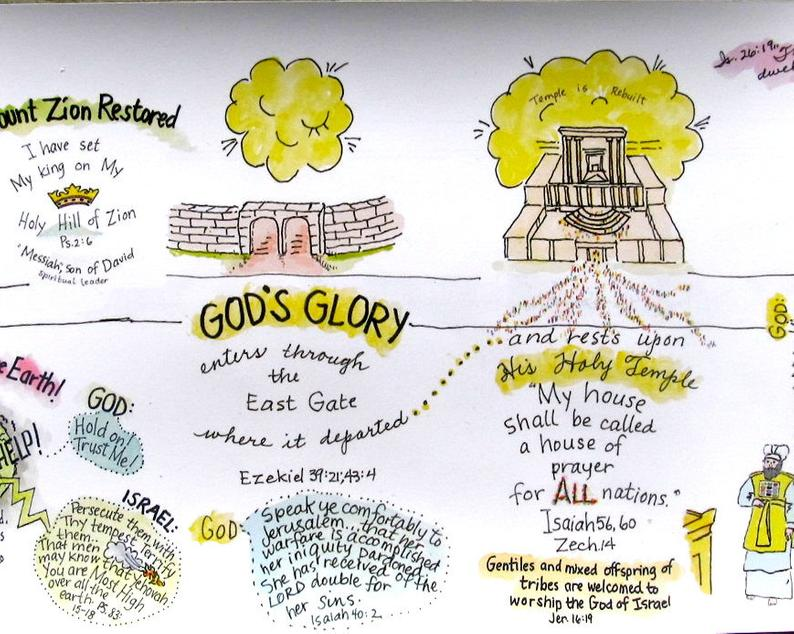 ount Zion Restored
I have set
My king on My
Holy Hill of Zion
Ps. 2:6
"Messiah", son of David
spiritual leader
Temple is Rebuilt
Is. 26:19
dwel
GOD'S GLORY
enters through
the
East Gate
where it departed
Ezekiel 39:21; 43:4
and rests upon
His Holy Temple
"My house
shall be called
a house of
prayer
for ALL nations."
Isaiah 56, 60
Zech. 14
Gentiles and mixed offspring of
tribes are welcomed to
worship the God of Israel
Jer. 16:19
GOD:
e Earth!
HELP!
GOD:
Hold on!
Trust Me!
ISRAEL:
Persecute them with
Thy tempest, terrify
them...
That men
may know that Jehovah
You are Most High
over all the
earth. Ps. 83:
15-18
GOD:
Speak ye comfortably to
Jerusalem... that her
warfare is accomplished
her iniquity pardoned.
She has received of the
LORD double for
her sins.
Isaiah 40:2